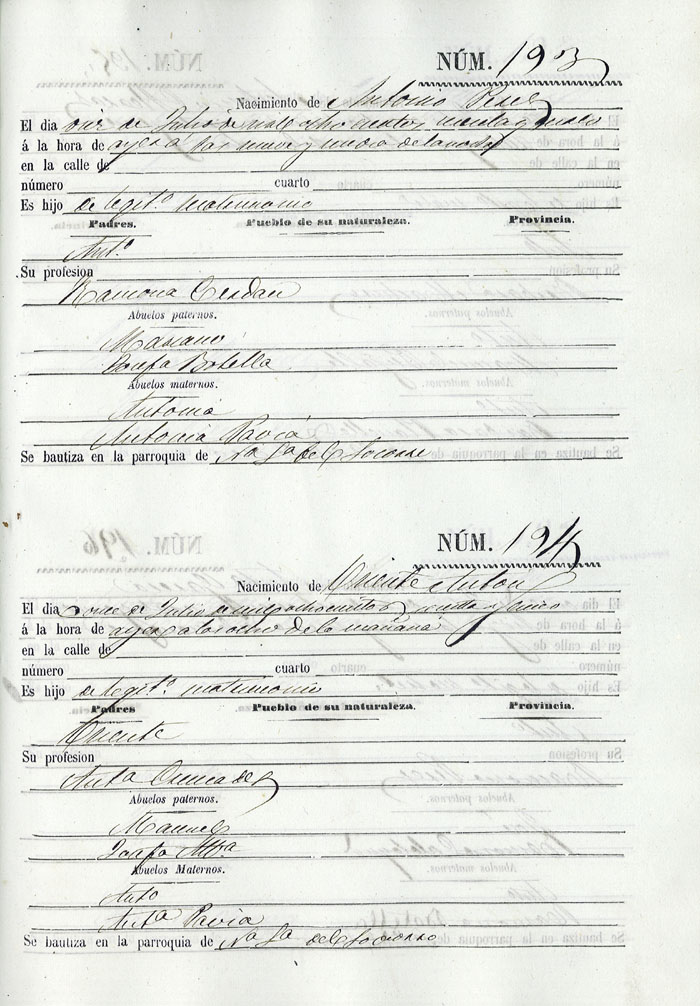 NÚM. 193
Nacimiento de Antonio Perez
El dia once de Julio de mil ochocientos
á la hora de ayer a las nueve y media de la noche
en la calle de
número cuarto
Es hijo de legit.º matrimonio
Padres. Pueblo de su naturaleza. Provincia.
Ant.º
Su profesion
Ramona Cerdan
Abuelos paternos.
Mariano
Josefa Botella
Abuelos maternos.
Antonio
Antonia Pavia
Se bautiza en la parroquia de Na Sa del Socorro
NÚM. 194
Nacimiento de Vicente Anton
El dia once de Julio de mil ochocientos
á la hora de ayer a las ocho de la mañana
en la calle de
número cuarto
Es hijo de legit.º matrimonio
Padres Pueblo de su naturaleza. Provincia.
Vicente
Su profesion
Anta
Abuelos paternos.
Manuel
Josefa
Abuelos Maternos.
Anto
Anta Pavia
Se bautiza en la parroquia de Na Sa del Socorro